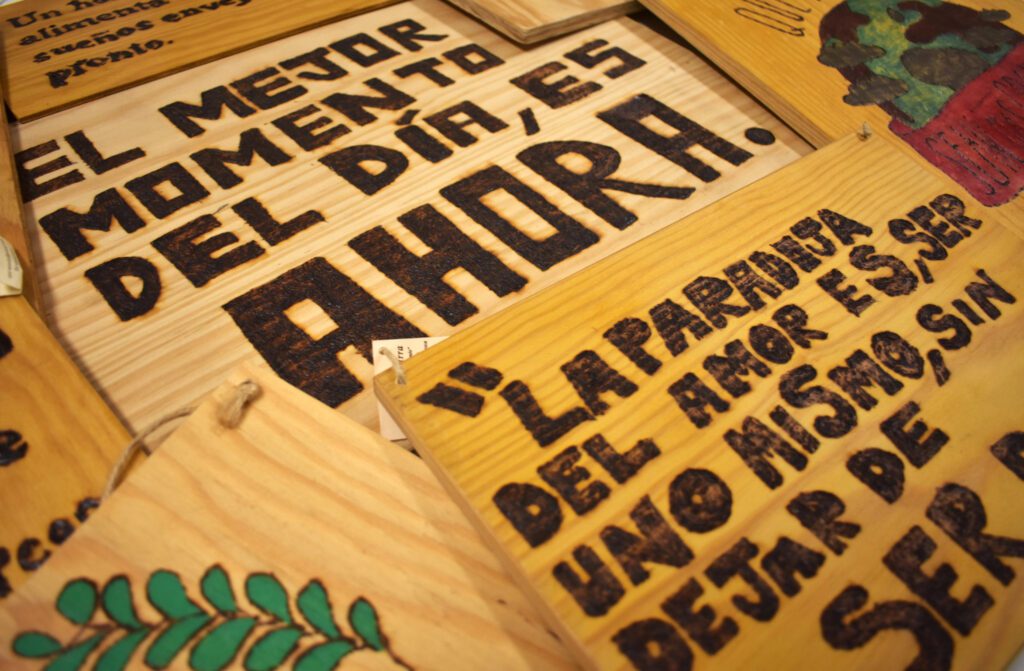 Un
alimenta
sueños
pronto.
EL MEJOR
MOMENTO
DEL DÍA, ES
AHORA.
"LA PARADIJA
DEL AMOR ES, SER
UNO MISMO, SIN
DEJAR DE
SER